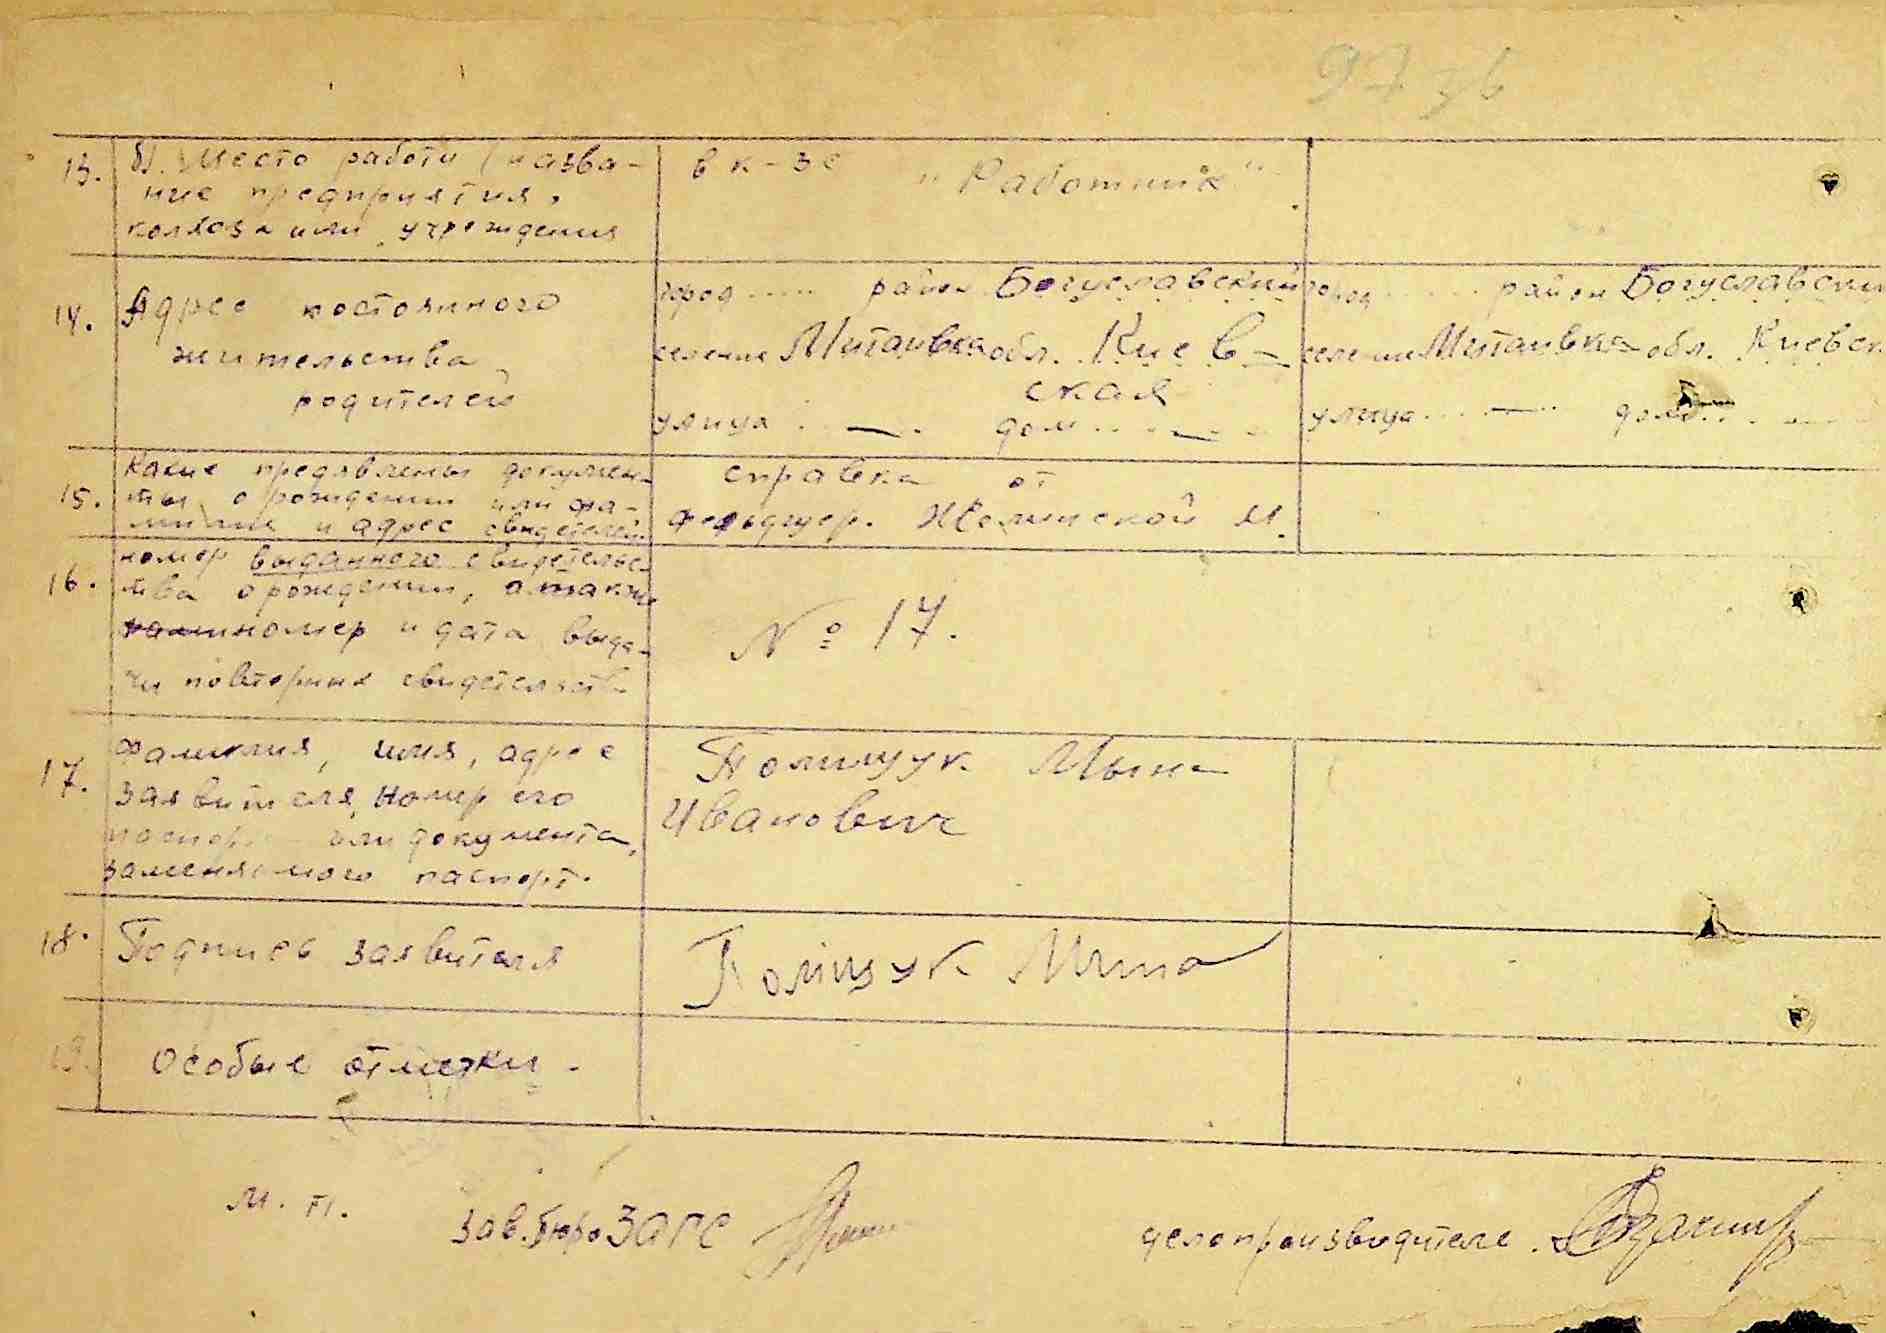 97 зв
13. б). Место работи (назва-
ние предприятия,
колхоза или учреждения
в к-зе "Работник".
14. Адрес постоянного
жительства
родителей
город ..... район Богуславский
селение Митаевка обл. Киев-
ская
улица . — . дом .. — ..
город ..... район Богуславски
селение Митаевка обл. Киевск
улица ... — ... дом ...
15. Какие предявлены докумен-
ты о рождении или фа-
милия и адрес свидетелей.
справка от
фельдшер. М.
16. номер выданного свидетельс-
тва о рождении, а также
номер и дата выда-
чи повторных свидетельств
№ 17.
17. Фамилия, имя, адрес
заявителя, номер его
паспорт или документа,
заменяемого паспорт.
Полищук Мына
Иванович
18. Подпись заявителя
Поліщук Мина
19. Особые отметки.
М. П.
зав. бюро ЗАГС
делопроизводитель.